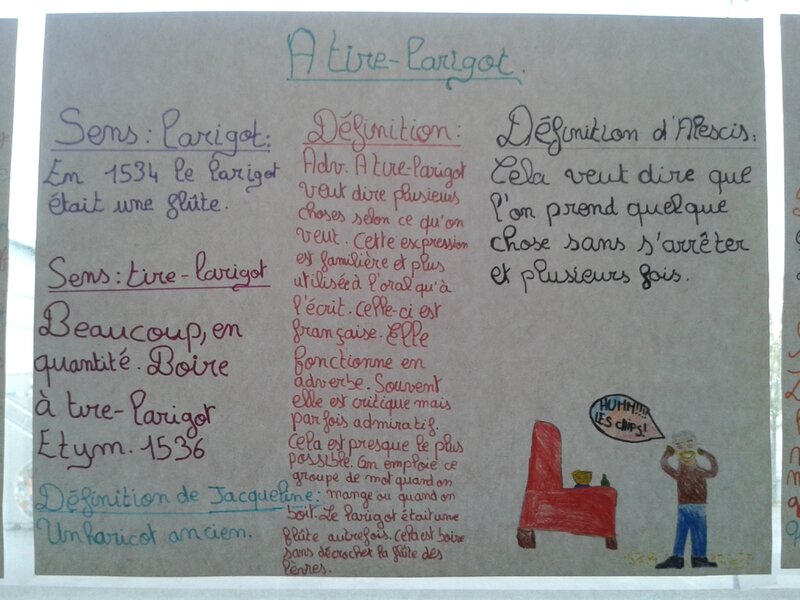 A tire-larigot.
Sens: larigot:
En 1534 le larigot
était une flûte.
Sens: tire-larigot
Beaucoup, en
quantité. Boire
à tire-larigot
Etym. 1536
Définition de Jacqueline:
Un haricot ancien.
Définition:
Adv. A tire-larigot
veut dire plusieurs
choses selon ce qu'on
veut. Cette expression
est familière et plus
utilisée à l'oral qu'à
l'écrit. Celle-ci est
française. Elle
fonctionne en
adverbe. Souvent
elle est critique mais
parfois admiratif.
Cela est presque le plus
possible. On emploie ce
groupe de mot quand on
mange ou quand on
boit. Le larigot était une
flûte autrefois. Cela est boire
sans décrocher la flûte des
lèvres.
Définition d'Alescis:
Cela veut dire que
l'on prend quelque
chose sans s'arrêter
et plusieurs fois.
HUHM!!!!
LES CHIPS!